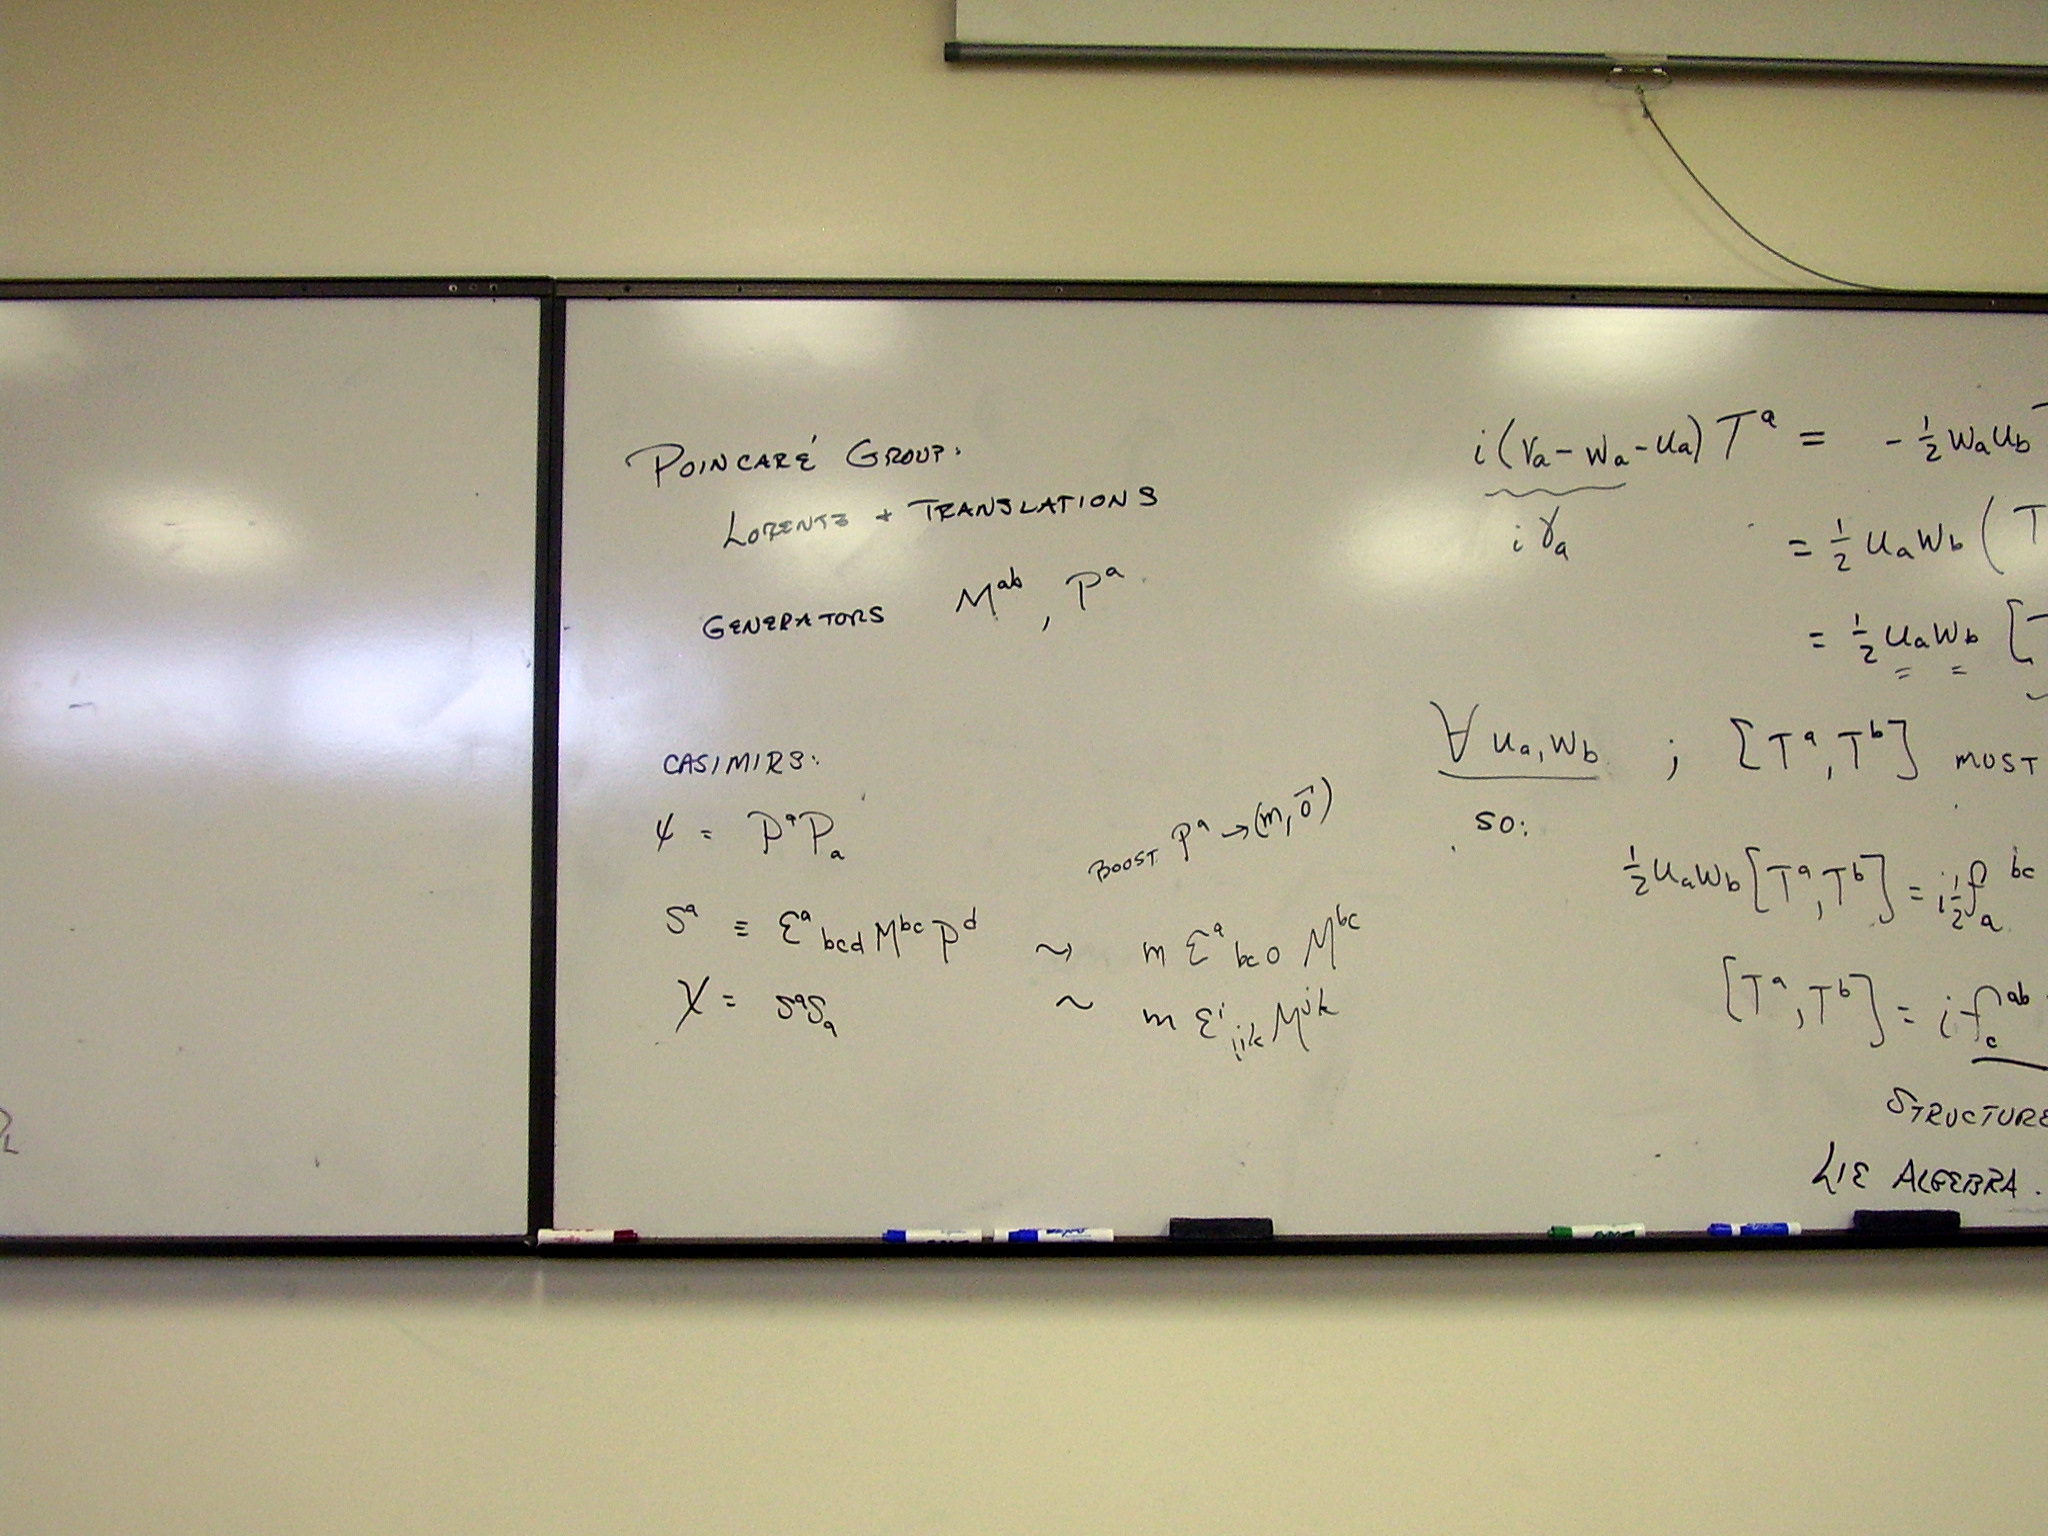 POINCARÉ GROUP.
LORENTZ + TRANSLATIONS
GENERATORS M^{ab}, P^a
CASIMIRS:
ψ = P^a P_a
BOOST P^a → (m, \vec{0})
S^a ≡ ε^a_{bcd} M^{bc} P^d ⤳ m ε^a_{bc0} M^{bc}
χ = S^a S_a ~ m ε^i_{ijk} M^{jk}
i(v_a - w_a - u_a) T^a = - 1/2 w_a u_b
i γ_a
= 1/2 u_a w_b ( T
= 1/2 u_a w_b [
∀ u_a, w_b ; [T^a, T^b] MUST
SO:
1/2 u_a w_b [T^a, T^b] = i 1/2 f_a^{bc}
[T^a, T^b] = i f_c^{ab}
STRUCTURE
LIE ALGEBRA.